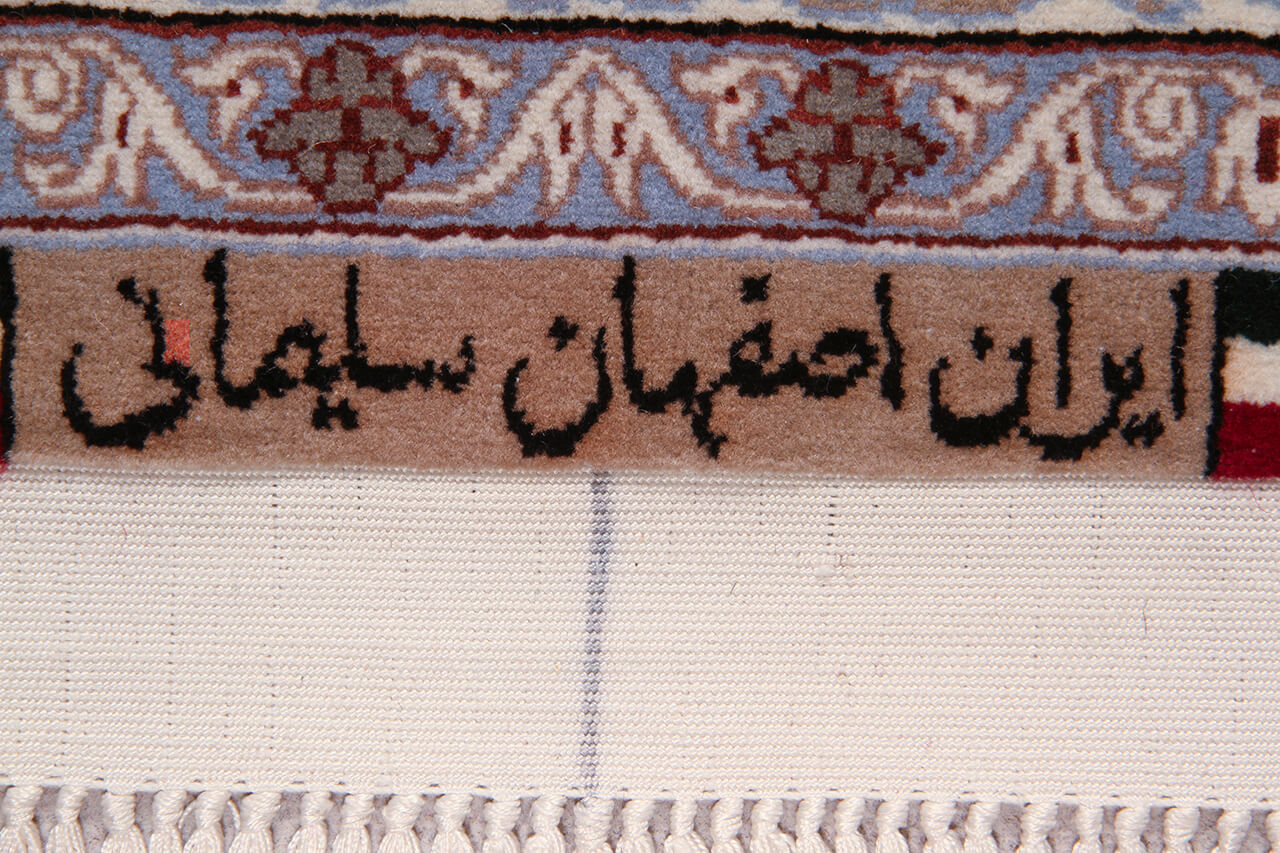 ایران اصفهان سلیمانی